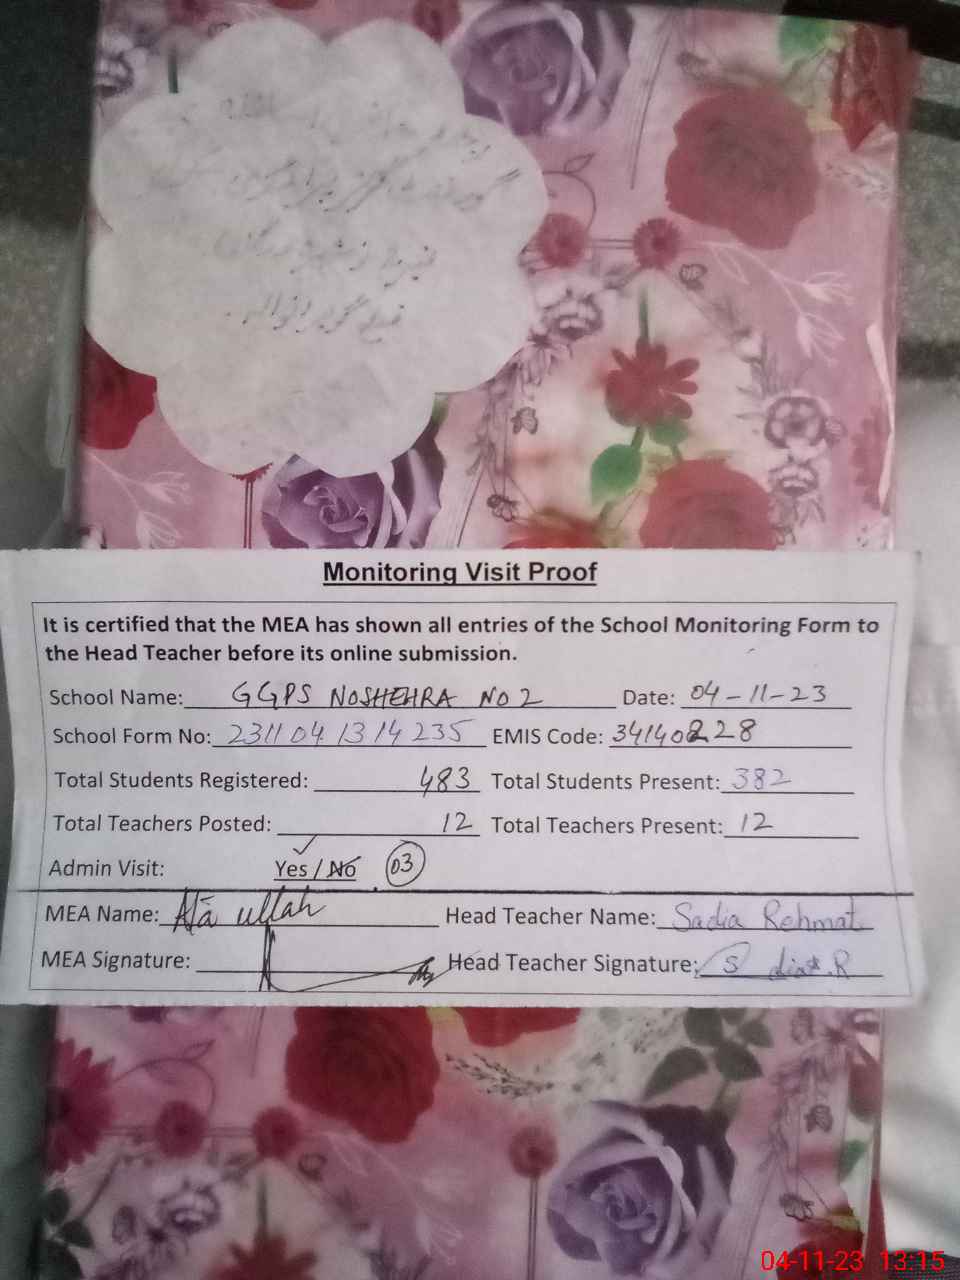 Monitoring Visit Proof
It is certified that the MEA has shown all entries of the School Monitoring Form to
the Head Teacher before its online submission.
School Name: GGPS NOSHEHRA NO 2 Date: 04-11-23
School Form No: 231104 1314 235 EMIS Code: 34140228
Total Students Registered: 483 Total Students Present: 382
Total Teachers Posted: 12 Total Teachers Present: 12
Admin Visit: Yes / No 03
MEA Name: Atā ullah Head Teacher Name: Sadia Rehmat
MEA Signature: Head Teacher Signature:
04-11-23 13:15